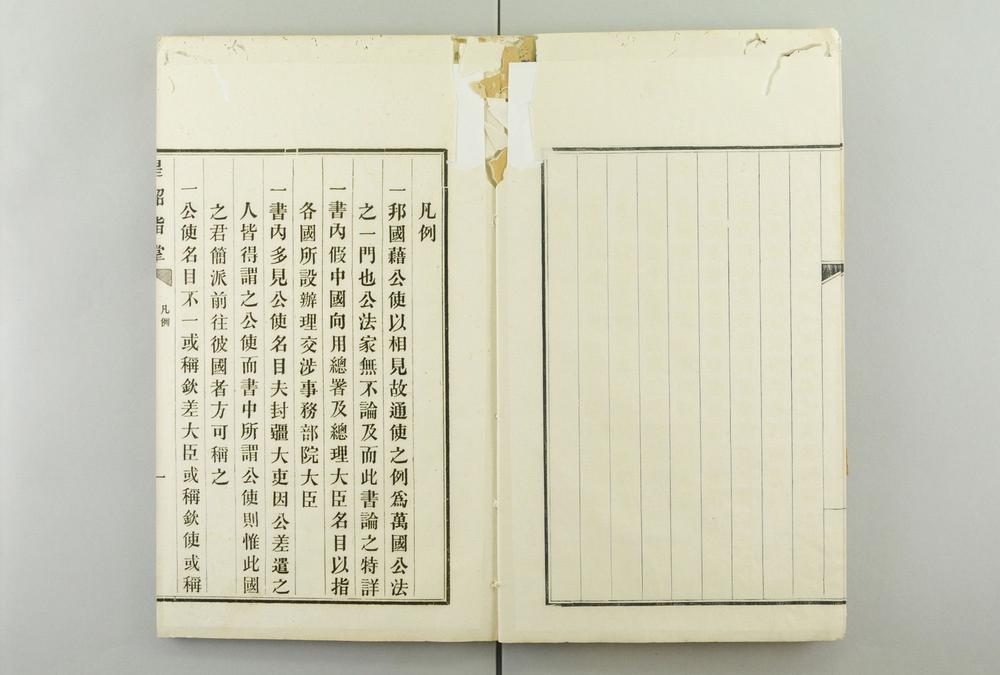 凡例
一邦國藉公使以相見故通使之例爲萬國公法
之一門也公法家無不論及而此書論之特詳
一書內假中國向用總署及總理大臣名目以指
各國所設辦理交涉事務部院大臣
一書內多見公使名目夫封疆大吏因公差遣之
人皆得謂之公使而書中所謂公使則惟此國
之君簡派前往彼國者方可稱之
一公使名目不一或稱欽差大臣或稱欽使或稱
星軺指掌
凡例
一